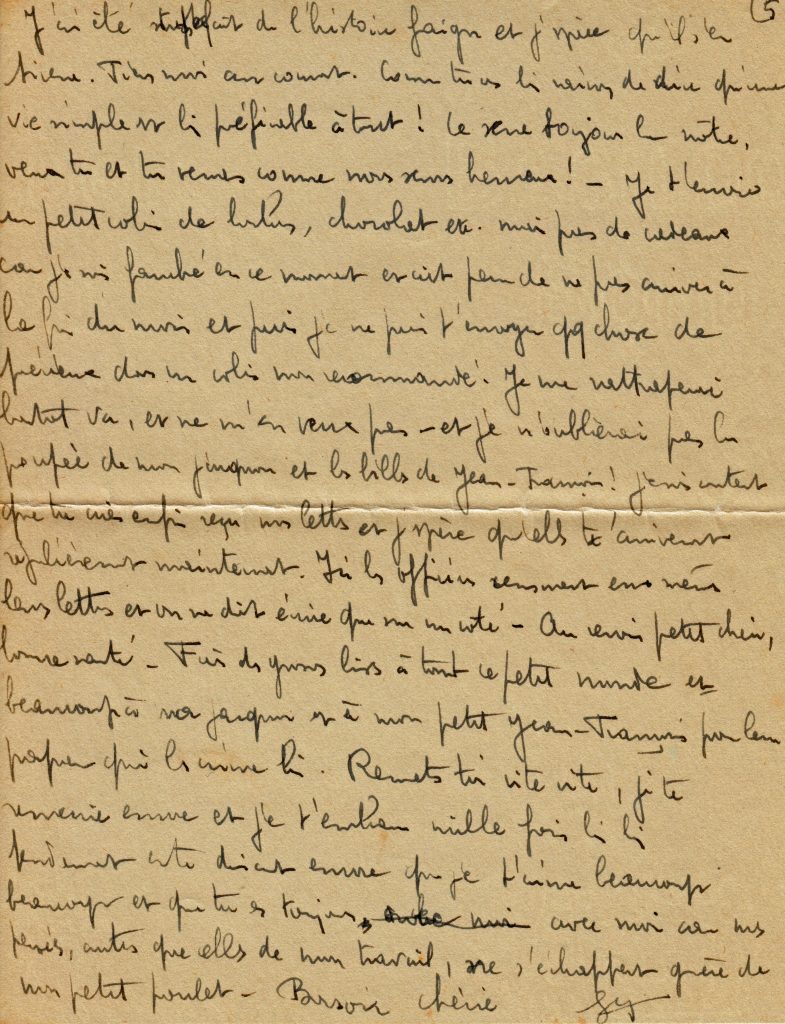 5
J'ai été stupéfait de l'histoire Faigre et j'espère qu'il s'en
tirera. Tiens moi au courant. Comme tu as bien raison de dire qu'une
vie simple est bien préférable à tout! Ce sera toujours la nôtre,
veux tu et tu verras comme nous serons heureux! - Je t'envoie
un petit colis de , chocolat etc. mais pas de cadeaux
car je suis fauché en ce moment et j'ai peur de ne pas arriver à
la fin du mois et puis je ne puis t'envoyer qq chose de
précieux dans un colis non recommandé. Je me rattraperai
bientôt va, et ne m'en veux pas - et je n'oublierai pas la
poupée de mon Jacquou et les billes de Jean-François! Je suis content
que tu aies enfin reçu mes lettres et j'espère qu'elles t'arriveront
régulièrement maintenant. Ici les officiers censurent eux mêmes
leurs lettres et on ne doit écrire que sur un côté - Au revoir petit chéri,
bonne santé - Fais de grosses bises à tout ce petit monde et
beaucoup à ma Jacquou et à mon petit Jean-François pour leur
papa qui les aime bien. Remets toi vite vite, je te
remercie encore et je t'embrasse mille fois bien bien
tendrement en te disant encore que je t'aime beaucoup
beaucoup et que tu es toujours avec moi car mes
pensées, autres que celles de mon travail, ne s'échappent guère de
mon petit poulet - Bonsoir chérie